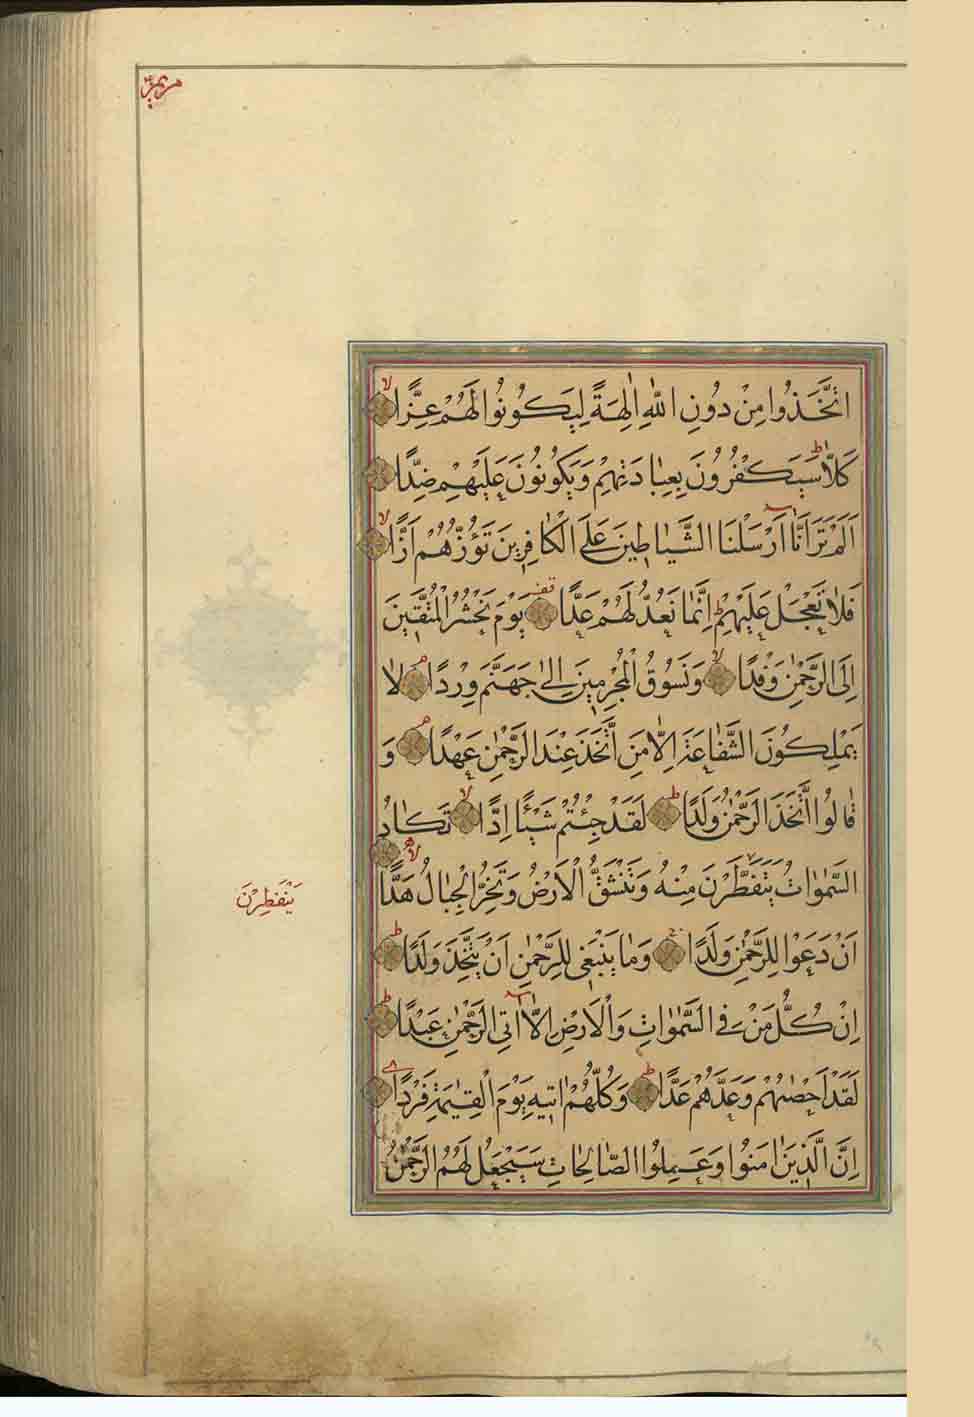 مريم
اتَّخَذُوا مِنْ دُونِ اللّٰهِ اٰلِهَةً لِيَكُونُوا لَهُمْ عِزًّا لا
كَلَّا ط سَيَكْفُرُونَ بِعِبَادَتِهِمْ وَيَكُونُونَ عَلَيْهِمْ ضِدًّا
اَلَمْ تَرَ اَنَّٓا اَرْسَلْنَا الشَّيَاطِينَ عَلَى الْكَافِرِينَ تَؤُزُّهُمْ اَزًّا لا
فَلَا تَعْجَلْ عَلَيْهِمْ ط اِنَّمَا نَعُدُّ لَهُمْ عَدًّا يَوْمَ نَحْشُرُ الْمُتَّقِينَ
اِلَى الرَّحْمٰنِ وَفْدًا لا وَنَسُوقُ الْمُجْرِمِينَ اِلٰى جَهَنَّمَ وِرْدًا م لَا
يَمْلِكُونَ الشَّفَاعَةَ اِلَّا مَنِ اتَّخَذَ عِنْدَ الرَّحْمٰنِ عَهْدًا م وَ
قَالُوا اتَّخَذَ الرَّحْمٰنُ وَلَدًا ط لَقَدْ جِئْتُمْ شَيْئًا اِدًّا لا تَكَادُ
السَّمٰوَاتُ يَتَفَطَّرْنَ مِنْهُ وَتَنْشَقُّ الْاَرْضُ وَتَخِرُّ الْجِبَالُ هَدًّا لا
يَنْفَطِرْنَ
اَنْ دَعَوْا لِلرَّحْمٰنِ وَلَدًا وَمَا يَنْبَغِي لِلرَّحْمٰنِ اَنْ يَتَّخِذَ وَلَدًا ط
اِنْ كُلُّ مَنْ فِي السَّمٰوَاتِ وَالْاَرْضِ اِلَّٓا اٰتِي الرَّحْمٰنِ عَبْدًا ط
لَقَدْ اَحْصٰيهُمْ وَعَدَّهُمْ عَدًّا ط وَكُلُّهُمْ اٰتِيهِ يَوْمَ الْقِيٰمَةِ فَرْدًا
اِنَّ الَّذِينَ اٰمَنُوا وَعَمِلُوا الصَّالِحَاتِ سَيَجْعَلُ لَهُمُ الرَّحْمٰنُ